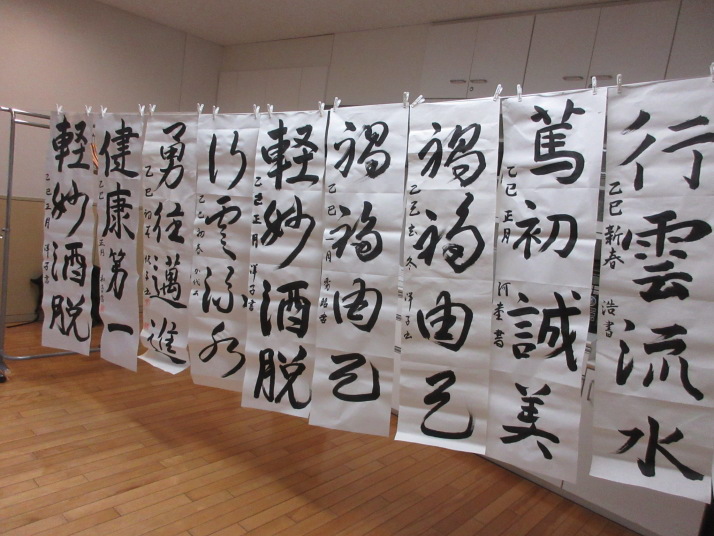 行雲流水
乙巳新春 浩書
篤初誠美
乙巳正月
禍福由己
乙巳 洋子書
禍福由己
乙巳一月
軽妙洒脱
乙巳正月 洋子書
行雲流水
乙巳初春
勇往邁進
乙巳初春
健康第一
乙巳正月
軽妙洒脱
乙巳正月 洋子書